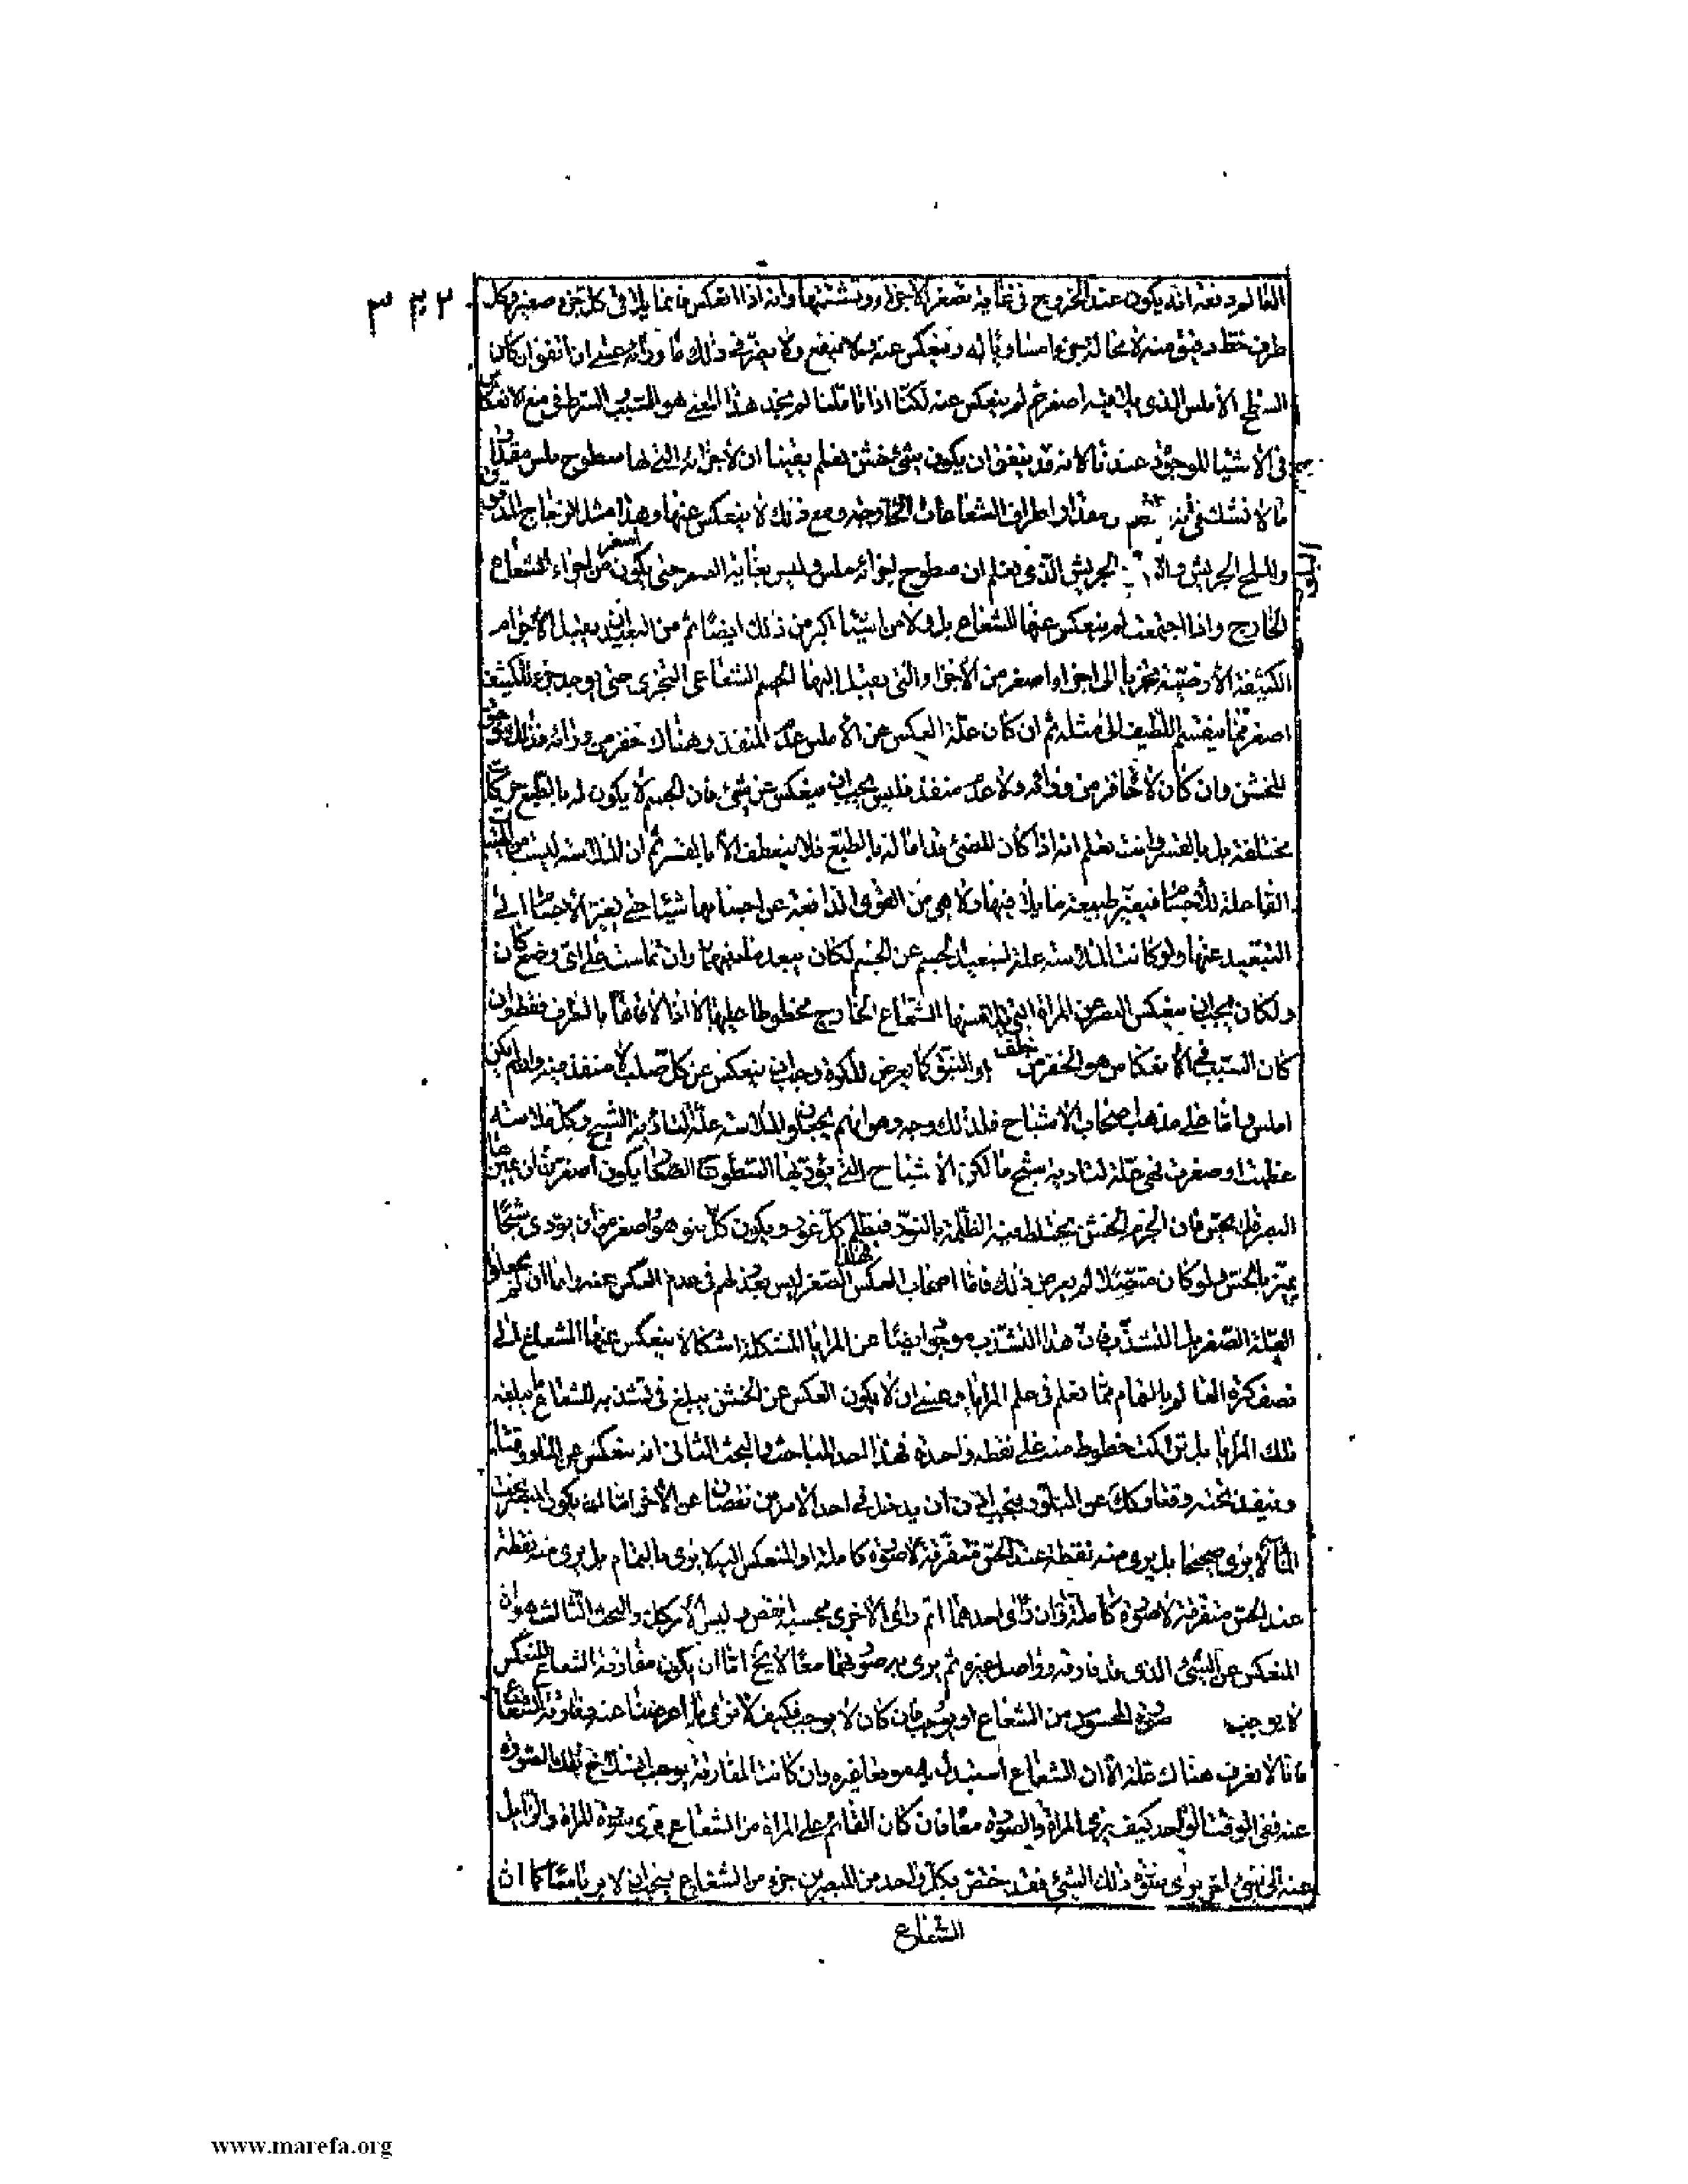 العالم دفعة انه يكون عند الخروج في غاية تصغر الاجزاء وتشتتها وانه اذا انعكس فانما يلاقى كل جزء صغير وكل
طرف خط دقيق منه لا محالة جزءا مساويا له وينعكس عنه ولا ينفع ولا يضر في ذلك ما وراءه عسى ان اتفق ان كان
السطح الاملس الذى يلاقيه اصغر ثم لم ينعكس عنه لكنا اذا تاملنا لم نجد هذا المعنى هو السبب والشرط في منع الانعكاس
في الاشياء الموجودة عندنا لانه قد يتفق ان يكون شئ خشن نعلم يقينا ان لاجزائه التى لها سطوح ملس مقدارا
ما لا نشك في انه مقدار اطراف الشعاعات الخارجة ومع ذلك لا ينعكس عنها وهذا مثل الزجاج المدقوق
والملح الجريش الجريش الذى نعلم ان سطوح اجزائه ملس وليس بغاية الصغر حتى يكون اصغر من اجزاء الشعاع
الخارج واذا اجتمعت لم ينعكس عنها الشعاع بل ولا من اشياء اكبر من ذلك ايضا ثم من البعيد ان يقبل الاجرام
الكثيفة الارضية تجزيا الى اجزاء اصغر من الاجزاء التى يقبل اليها الجسم الشعاعى التجزى حتى يوجد جزء للكثيف
اصغر مما ينقسم اللطيف الى مثله ثم ان كان علة العكس عن الاملس عدم المنفذ وهناك حفز من ورائه فذلك موجود
للخشن وان كان لا حافز من ورائه ولا عدم منفذ فليس يجب ان ينعكس عن شئ فان الجسم لا يكون له بالطبع حركات
مختلفة بل بالقسر وانت تعلم انه اذا كان المضئ قد اماله بالطبع فلا ينعطف الا بالقسر ثم ان الملاسة ليست من الهيئات
الفاعلة للاجسام فيغير طبيعة ما يلاقيها ولا هى من القوى الدافعة عن اجسامها شيئا حتى يقسر الاجسام الى
التبعيد عنها ولو كانت الملاسة علة لتبعيد الجسم عن الجسم لكان يبعد ما بينهما وان تماست على اى وضع كان
ولكان يجب ان ينعكس البصر عن المرآة التى يلامسها الشعاع الخارج مخطوطا عليها لا اذا لاقاها بالطرف فقط وان
كان السبب في الانعكاس هو الحفز من خلف او النتو كما يعرض للكرة وجب ان ينعكس عن كل صلب لا منفذ فيه وان لم يكن
املس واما على مذهب اصحاب الاشباح فلذلك وجه وهو انهم يجعلون الملاسة علة لتادية الشبح وكل ملاسة
عظمت او صغرت فهى علة لتادية شبح ما لكن الاشباح التى يؤديها السطوح الصغار يكون اصغر من ان يميزها
البصر فلا يحس فان الجرم الخشن يختلط فيه الظلمة بالنور فيظلم كل غور ويكون كل نتو هو اصغر من ان يؤدى شبحا
يميزه الحس ولو كان متصلا لم يعرض ذلك فاما اصحاب العكس فهذا الصغر ليس بعذر لهم في عدم العكس عنه واما ان لم يجعلوا
العلة الصغر بل التشذب فان هذا التشذب موجود ايضا عن المرايا المشكلة اشكالا ينعكس عنها الشعاع الى
نصف كرة العالم بالتمام مما نعلم في علم المرايا وعسى ان لا يكون العكس عن الخشن يبلغ في تشذيبه للشعاع ما يبلغه
تلك المرايا بل تراكمت خطوط منه على نقطة واحدة فهذا احد المباحث والبحث الثانى انه ينعكس عن الماء وقتا
وينفذ تحته وقتا وكذلك عن البلور فيجب ان يدخل في احد الامرين نقصان عن الآخر اما ان يكون المبصر تحت
الماء لا يرى صحيحا بل يرى منه نقطة عند الحس متفرقة لا صورة كاملة او المنعكس اليه لا يرى بالتمام بل يرى منه نقطة
عند الحس متفرقة لا صورة كاملة وان راى احدهما اتم راى الاخرى بحسبه انقص وليس الامر كذلك والبحث الثالث هو ان
المنعكس عن الشئ الذى قد فارقه وواصل غيره ثم يرى به صورتهما معا لا يخ اما ان يكون مفارقة الشعاع المنعكس
لا يوجب صورة المحسوس من الشعاع او يوجب فان كان لا يوجب فكيف لا نرى ما اعرضنا عنه وفارقه الشعاع
فانا لا نعرف هناك علة الا ان الشعاع استبدل به موقعا غيره وان كانت المفارقة يوجب انسلاخ تلك الصورة
عنه ففى الوقت الواحد كيف يرى المرآة والصورة معا فان كان القائم على المرآة من الشعاع يرى صورة المرآة والزايل
عنه الى شئ آخر يرى صورة ذلك الشئ فقد خص بكل واحد من المبصرين جزء من الشعاع فيجب ان لا يرياه معا كما ان
الشعاع
www.marefa.org